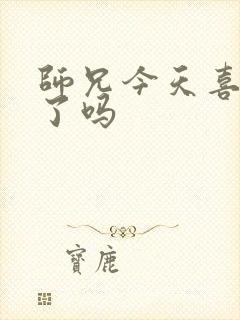 師兄今天喜
了吗
寶鹿